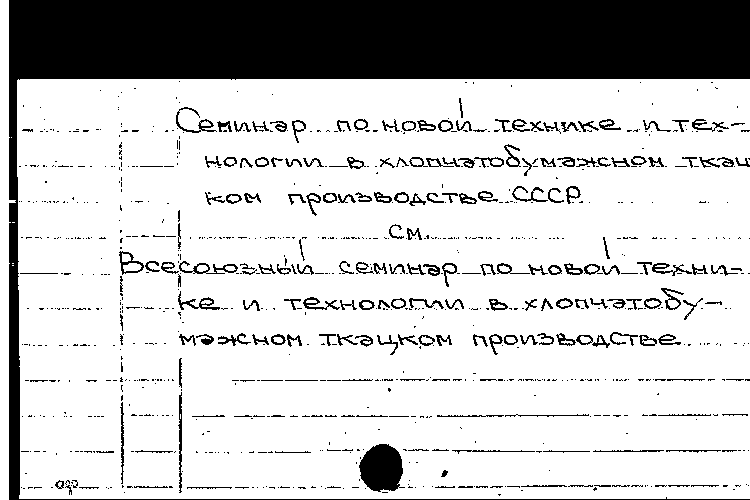 Семинар по новой технике и тех-
нологии в хлопчатобумажном ткац
ком производстве СССР
см.
Всесоюзный семинар по новой техни-
ке и технологии в хлопчатобу-
мажном ткацком производстве